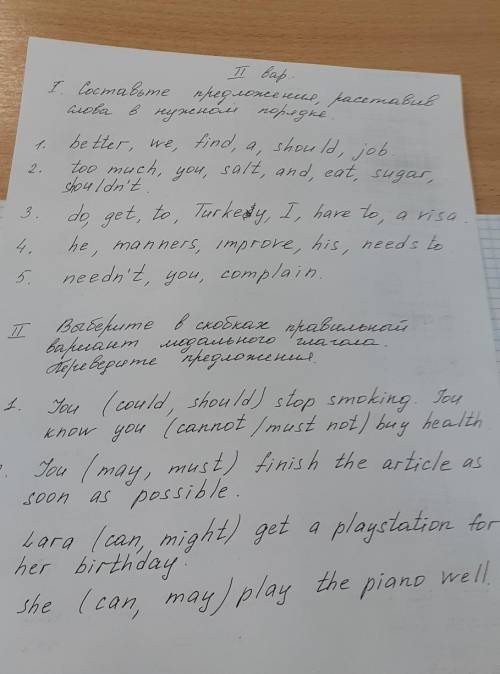 II вар.
I. Составьте предложения, расставив
слова в нужном порядке.
1. better, we, find, a, should, job.
2. too much, you, salt, and, eat, sugar,
shouldn't.
3. do, get, to, Turkey, I, have to, a visa.
4. he, manners, improve, his, needs to
5. needn't, you, complain.
II Выберите в скобках правильный
вариант модального глагола.
Переведите предложения.
1. You (could, should) stop smoking. You
know you (cannot / must not) buy health
You (may, must) finish the article as
soon as possible.
Lara (can, might) get a playstation for
her birthday.
She (can, may) play the piano well.